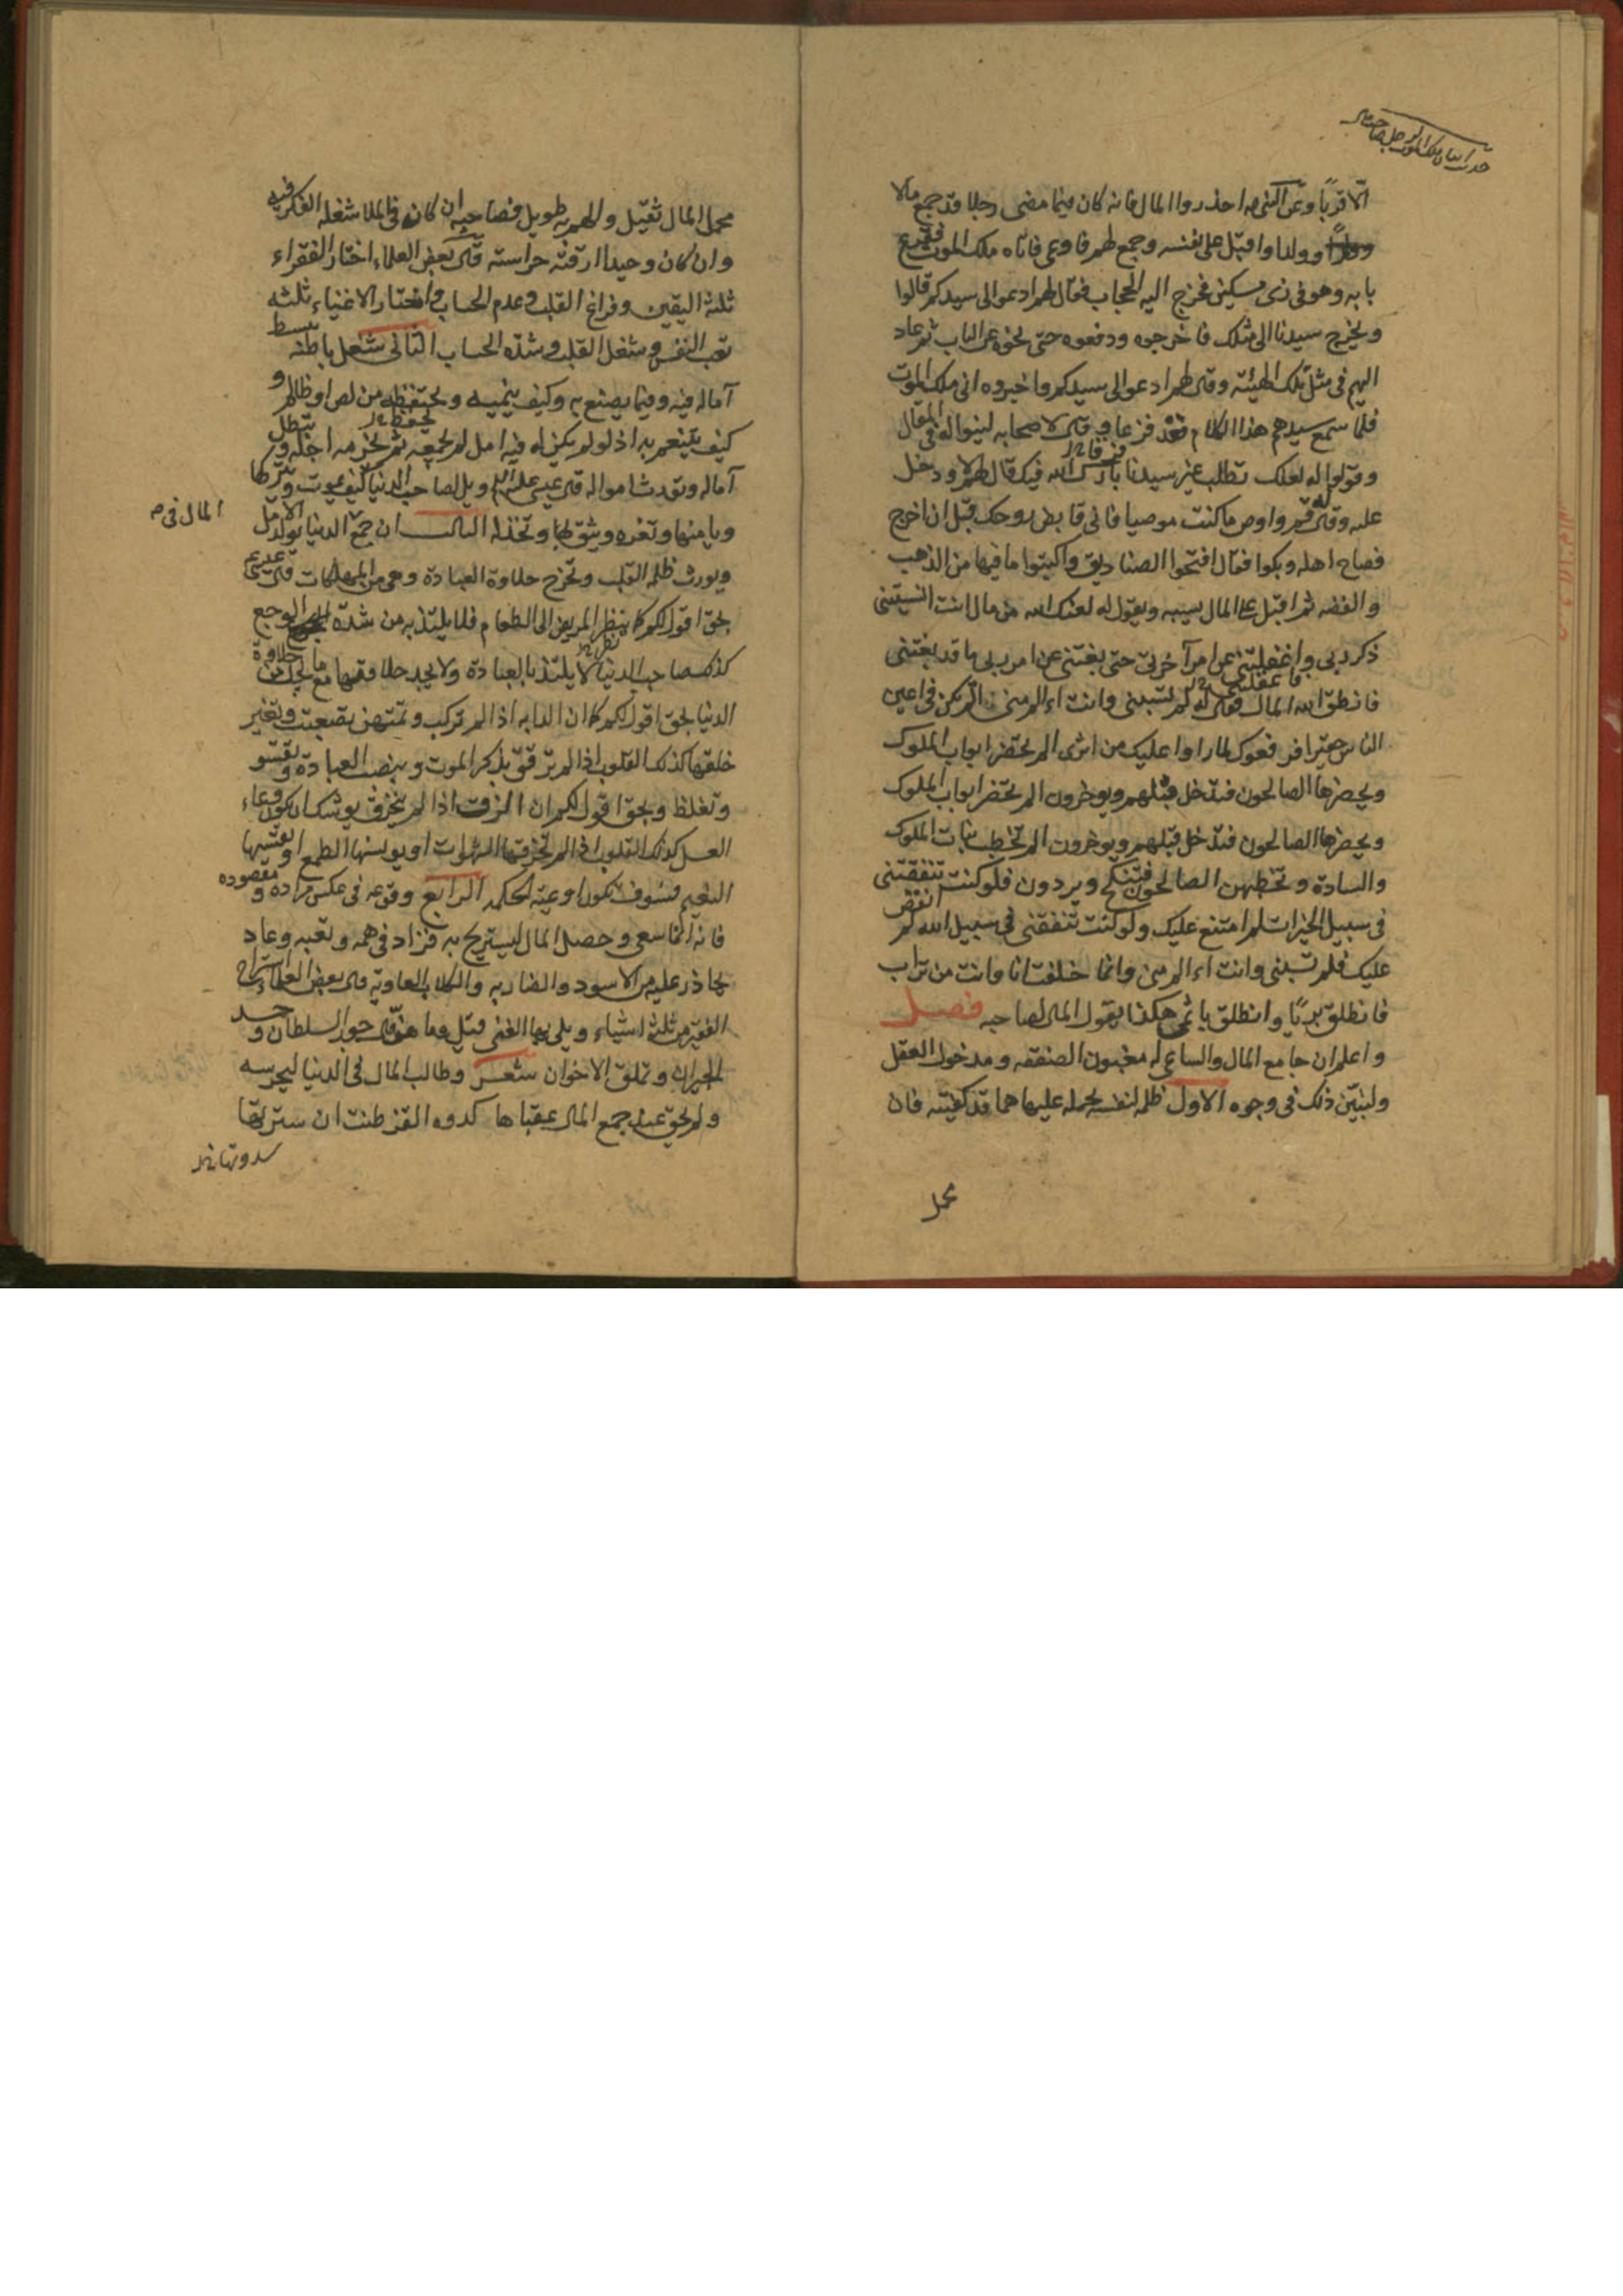 الا قربا وعن النبي ص احذروا المال فانه كان فيما مضى رجلا قد جمع مالا
وولدا واقبل على نفسه وجمع لهم فاوعى فاتاه ملك الموت فقرع
بابه وهو في زي مسكين فخرج اليه الحجاب فقال لهم ادعوا الى سيدكم قالوا
ويخرج سيدنا الى مثلك فاخرجوه ودفعوه حتى نحوه عن الباب ثم عاد
اليهم في مثل تلك الهيئة وقال لهم ادعوا الى سيدكم واخبروه اني ملك الموت
فلما سمع سيدهم هذا الكلام قعد فزعا وقال لاصحابه لينوا له في المقال
وقولوا له لعلك تطلب غير سيدنا بارك الله فيك فقال لهم لا ودخل
عليه وقال له قم واوص ما كنت موصيا فاني قابض روحك قبل ان اخرج
فصاح اهله وبكوا فقال افتحوا الصناديق واكتبوا ما فيها من الذهب
والفضه ثم اقبل على المال يسبه ويقول له لعنك الله من مال انت انسيتني
ذكر ربي واغفلتني عن امر آخرتي حتى بغتني من امر ربي ما قد بغتني
فانطق الله المال فقال له لم تسبني وانت ءالم مني الم تكن في اعين
الناس حقيرا فرفعوك لما راوا عليك من اثري الم تحضر ابواب الملوك
ويحضرها الصالحون فتدخل قبلهم ويوخرون الم تحضر ابواب الملوك
ويحضرها الصالحون فتدخل قبلهم ويوخرون الم تخطب بنات الملوك
والسادة وتخطبهن الصالحون فتنكح ويردون فلو كنت تنفقتني
في سبيل الخيرات لم امتنع عليك ولو كنت تنفقني في سبيل الله لم انقض
عليك فلم تسبني وانت ءالم مني وانما خلقت انا وانت من تراب
فانطلق بريا وانطلق باثمي هكذا يقول المال لصاحبه فصل
واعلم ان جامع المال والساعي له مغبون الصفقه ومدخول العقل
ولنبين ذلك في وجوه الاول ظلمه لنفسه بحمله عليها هما قد كفيته فان
محمل
محمل المال ثقيل والهم به طويل فصاحبه ان كان في الملا شغله الفكر فيه
وان كان وحيدا ارقته حراسته قال بعض العلماء اختار الفقراء
ثلثه اليقين وفراغ القلب وعدم الحساب واختار الاغنياء ثلثه
تعب النفس وشغل القلب وشدة الحساب الثاني شغل باطنه ببسط
آماله فيه وفيما يصنع به وكيف ينميه ويحتفظه من لص او ظالم و
كيف يتنعم به اذ لو لم يكن له فيه امل لم يجمعه ثم يخترمه اجله وتبطل
آماله ويورث امواله قال عيسى عليه السلام ويل لصاحب الدنيا كيف يموت ويتركها
ويامنها وتغره ويثق بها وتخذله الثالث ان جمع الدنيا يولد الامل
المال في م
ويورث ظلمه القلب وتخرج حلاوة العبادة وهي من المهلكات قال عيسى ع
بحق اقول لكم كما ينظر المريض الى الطعام فلا يلتذ به من شدة الوجع
كذلك صاحب الدنيا لا يلتذ بالعبادة ولا يجد حلاوتها مع ما يجد من حلاوة
الدنيا بحق اقول لكم كما ان الدابه اذا لم تركب وتمتهن تصعبت وتغير
خلقها كذلك القلوب اذا لم ترقق بذكر الموت وبنصب العبادة تقسو
وتغلظ وبحق اقول لكم ان الزق اذا لم ينخرق يوشك ان يكون وعاء
العسل كذلك القلوب اذا لم تخرقها الشهوات او يدنسها الطمع او يقسيها
النعيم فسوف تكون اوعية الحكمه الرابع وقوعه في عكس مراده ومقصوده
فانه انما سعى وحصل المال ليستريح به فزاد في همه وتعبه وعاد
يحاذر عليه من الاسود والضاريه والكلاب العاويه قال بعض العلماء استراح
الفقير من ثلثه اشياء وبلي بها الغني قيل وما هن قال جور السلطان وحسد
الجيران وتملق الاخوان شعر وطالب المال في الدنيا ليحرسه
ولم يخف عند جمع المال عقباها كدوده القز ظنت ان سترتها